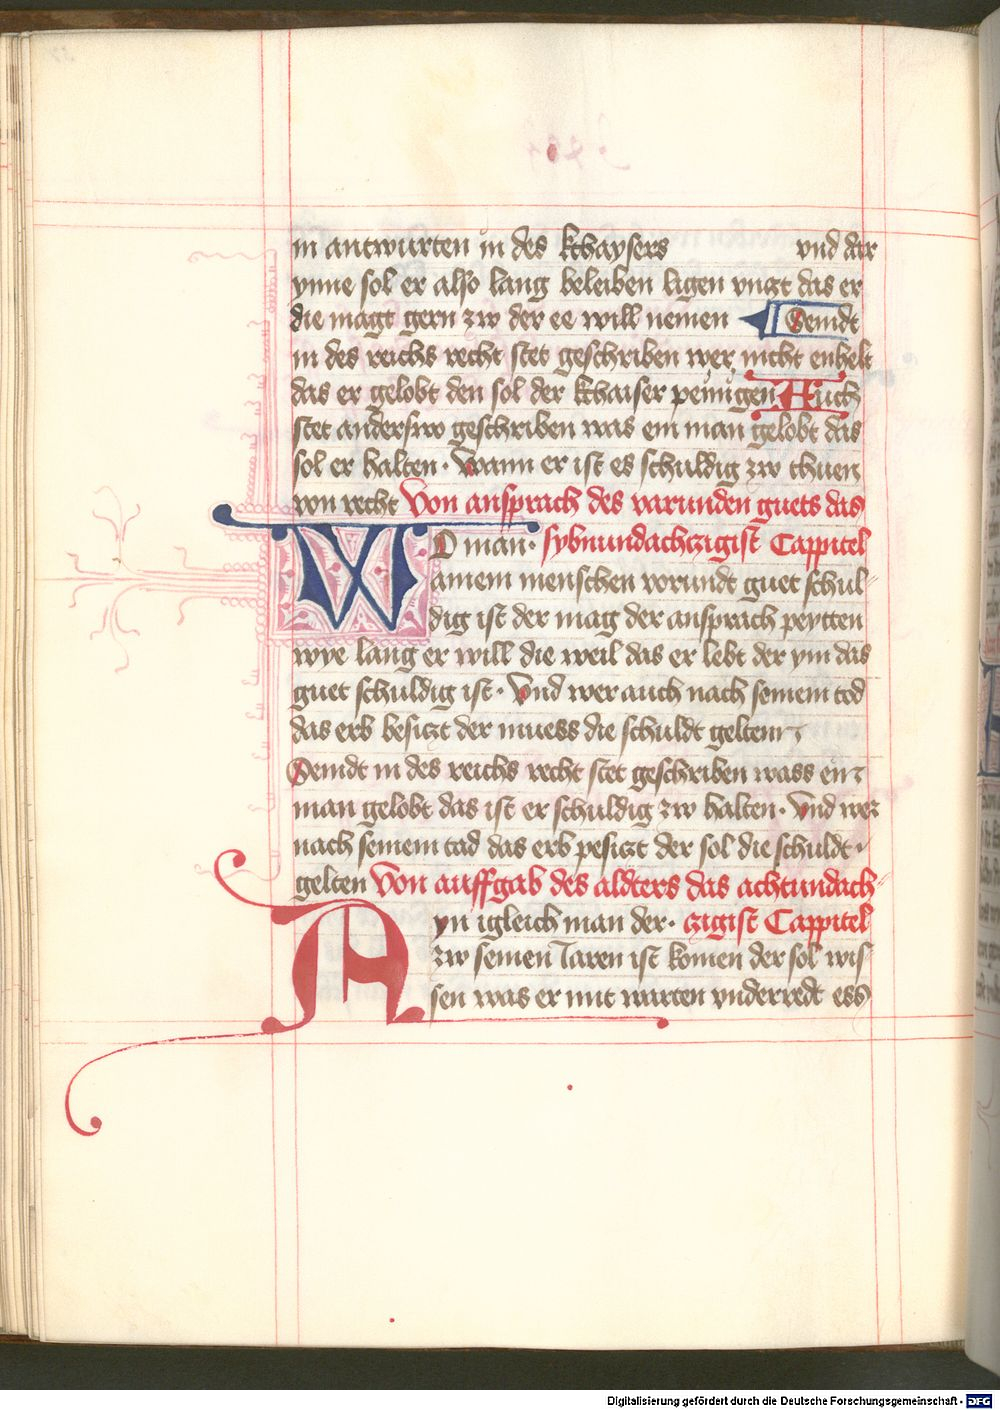 in antwurten in des kchaysers vnd dar
ynne sol er also lang beleiben ligen vnczt das er
die magt gern zw der ee will nemen Seindt
in des reichs recht stet geschriben wer nicht enhelt
das er gelobt den sol der kchaiser peinigen Auch
stet anderswo geschriben was ein man gelobt das
sol er halten · Wann er ist es schuldig zw thuen
von recht Von ansprach des varunden guets das
WO man · sybnundachczigist Cappitel
ainem menschen vorundt guet schul
dig ist der mag der ansprach peytten
wye lang er will die weil das er lebt der ym das
guet schuldig ist · Vnd wer auch nach seinem tod
das erb besiczt der muess die schuldt gelten
Seindt in des reichs recht stet geschriben wass ein
man gelobt das ist er schuldig zw halten · Vnd wer
nach seinem tad das erb pesiczt der sol die schuldt ·
gelten Von auffgab des aldters das achtundach
Ayn igleich man der · czigist Cappitel
zw seinen Iaren ist komen der sol wis
sen was er mit warten vnderredt ess
Digitalisierung gefördert durch die Deutsche Forschungsgemeinschaft - DFG